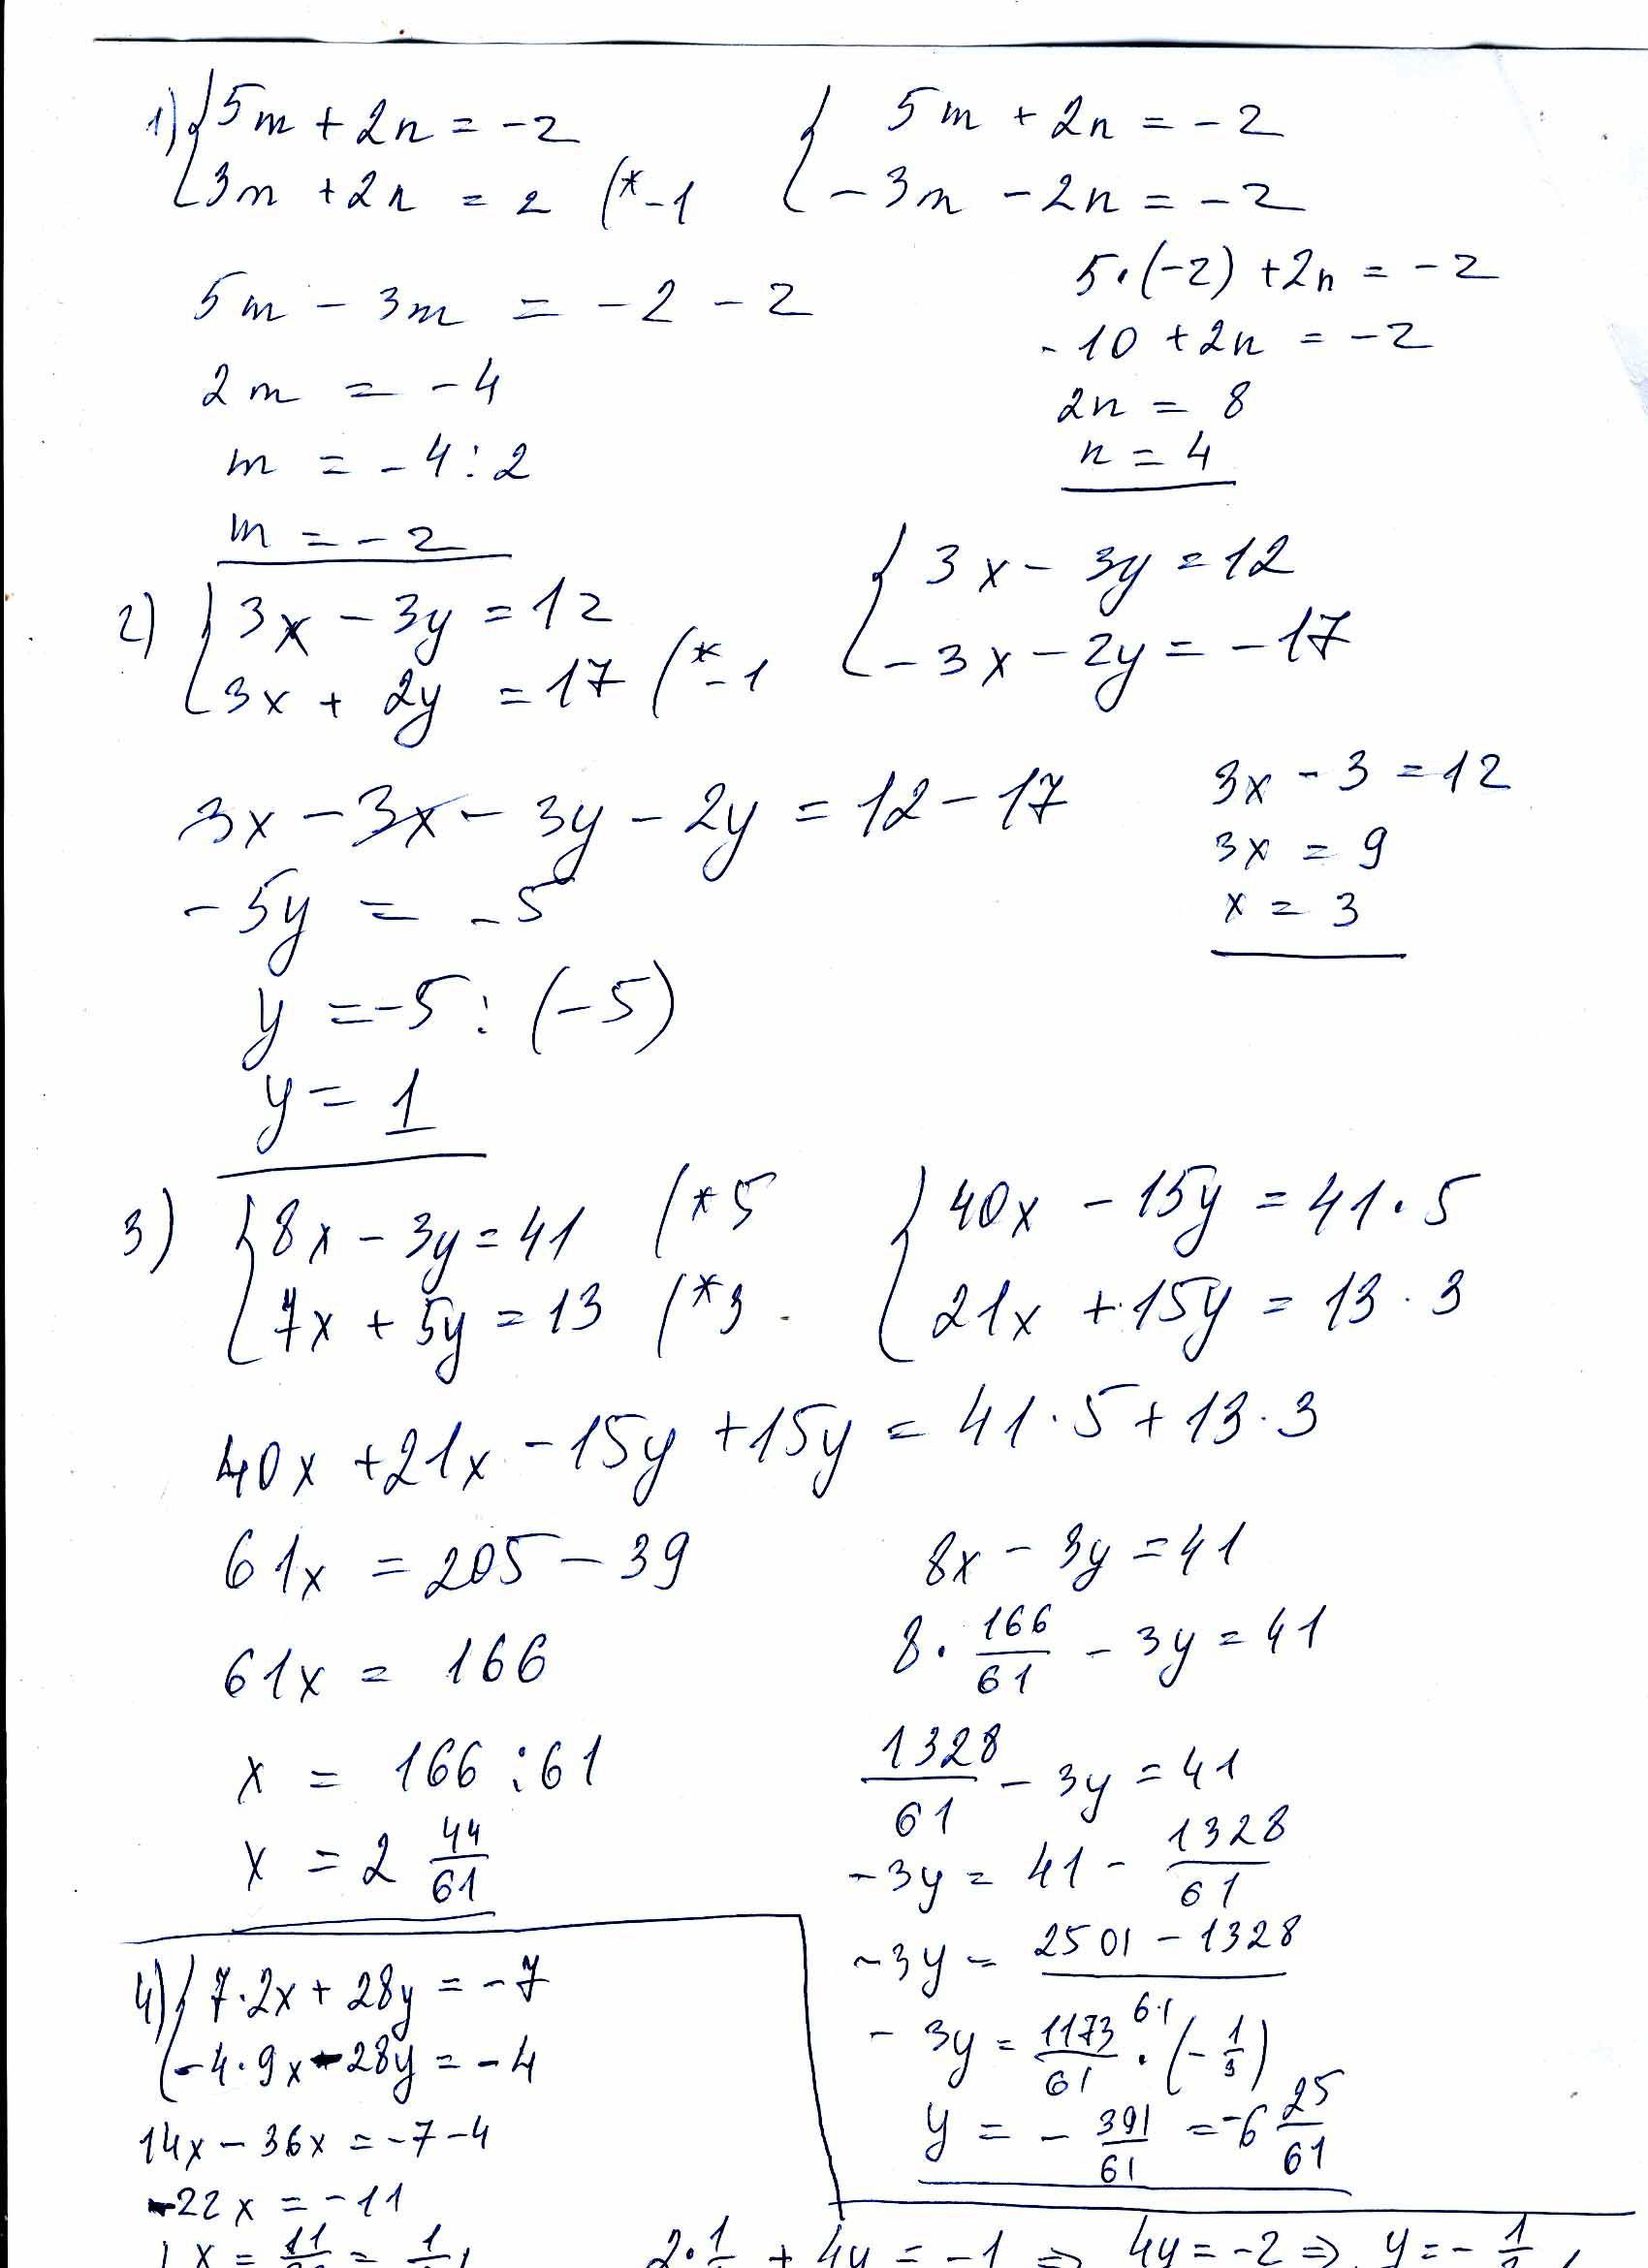 1) { 5m + 2n = -2
3m + 2n = 2 (* -1
{ 5m + 2n = -2
-3m - 2n = -2
5m - 3m = -2 - 2
2m = -4
m = -4 : 2
m = -2
5·(-2) + 2n = -2
-10 + 2n = -2
2n = 8
n = 4
2) { 3x - 3y = 12
3x + 2y = 17 (* -1
{ 3x - 3y = 12
-3x - 2y = -17
3x - 3x - 3y - 2y = 12 - 17
-5y = -5
y = -5 : (-5)
y = 1
3x - 3 = 12
3x = 9
x = 3
3) { 8x - 3y = 41 (* 5
7x + 5y = 13 (* 3
{ 40x - 15y = 41·5
21x + 15y = 13·3
40x + 21x - 15y + 15y = 41·5 + 13·3
61x = 205 - 39
61x = 166
x = 166 : 61
x = 2 44/61
8x - 3y = 41
8 · 166/61 - 3y = 41
1328/61 - 3y = 41
-3y = 41 - 1328/61
-3y = (2501 - 1328)/61
-3y = 1173/61 · (-1/3)
y = -391/61 = -6 25/61
4) { 7·2x + 28y = -7
-4·9x - 28y = -4
14x - 36x = -7 - 4
-22x = -11